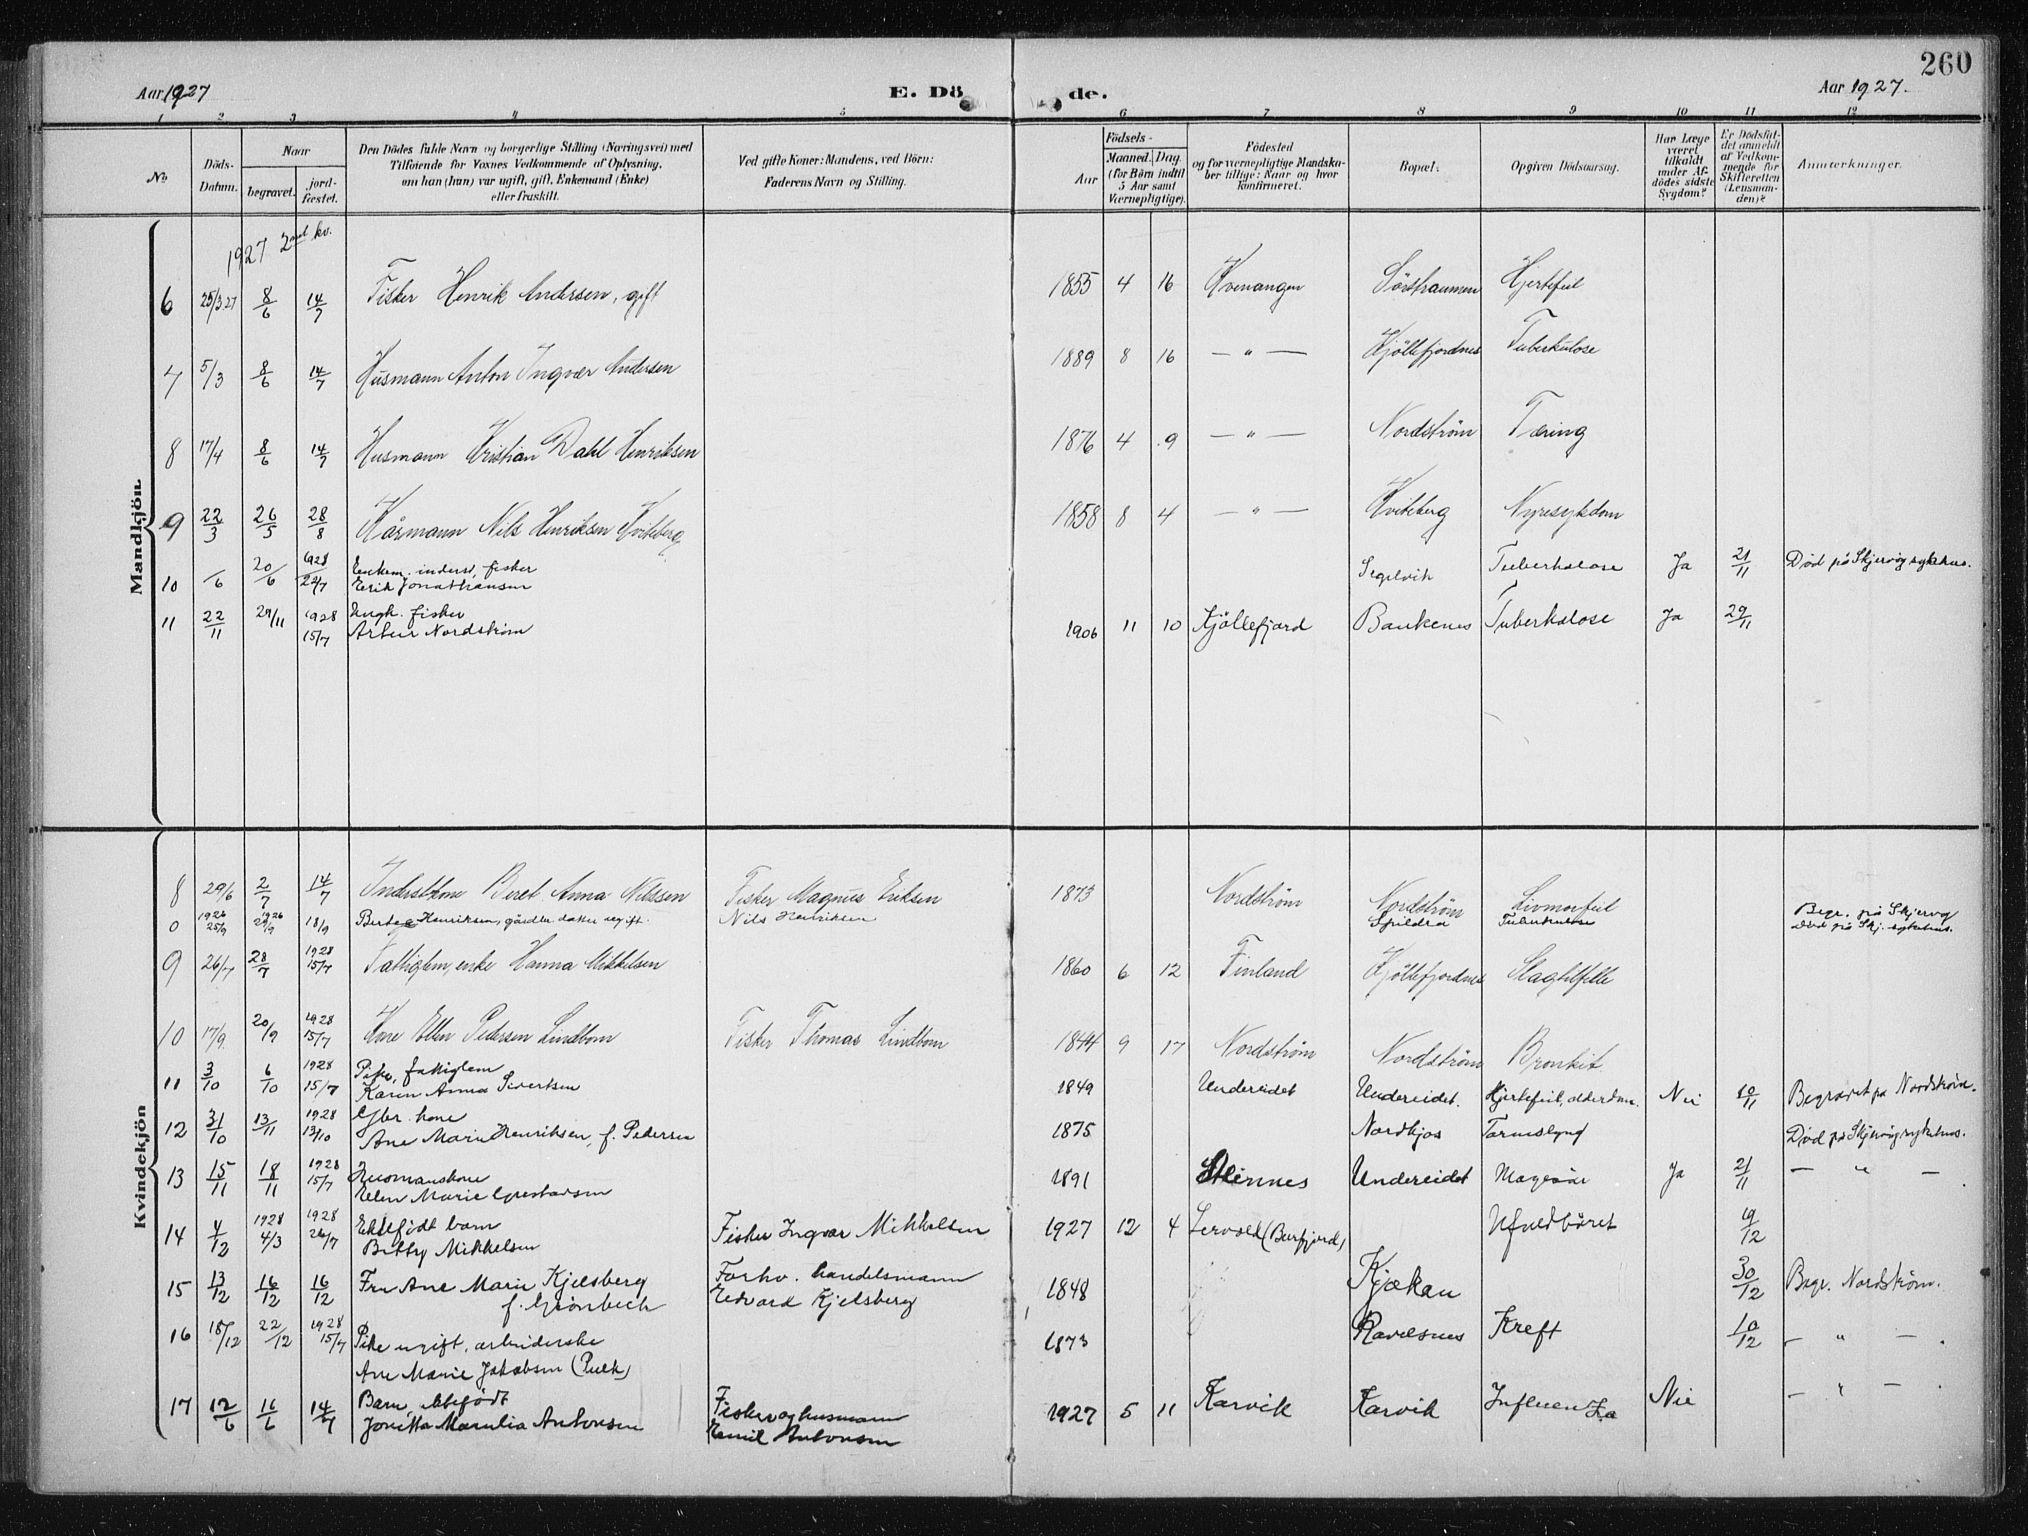 260
Aar 1927
E. Dö
de.
Aar 1927.
1 2 3 4 5 6 7 8 9 10 11 12
No
Döds-Datum.
Naar
begravet.
jord-fæstet.
Den Dödes fulde Navn og borgerlige Stilling (Næringsvei) med
Tilföiende for Voxnes Vedkommende af Oplysning,
om han (hun) var ugift, gift, Enkemand (Enke)
eller fraskilt.
Ved gifte Koner: Mandens, ved Börn:
Faderens Navn og Stilling.
Födsels-
Aar
Maaned. Dag
(for Börn indtil
5 Aar samt
Værnepligtige).
Födested
og for værnepligtige Mandska-
ber tillige: Naar og hvor
konfirmeret.
Bopæl:
Opgiven Dödsaarsag.
Har Læge
været
tilkaldt
under Af-
dödes sidste
Sygdom?
Er Dödsfal-
det anmeldt
af Vedkom-
mende for
Skifteretten
(Lensman-
den)?
Anmærkninger.
Mandkjön.
1927 2net kv.
6 25/3 27 8/6 14/7 Fisker Henrik Andersen, gift 1855 4 16 Kvenangen Sörstraumen Hjertefeil
7 5/3 8/6 14/7 Husmann Anton Ingvar Andersen 1889 8 16 — " — Kjöllefjordnes Tuberkulose
8 17/4 8/6 14/7 Husmann Kristian Dahl Henriksen 1876 4 9 — " — Nordström Tæring
9 22/3 26/5 28/8 Kårmann Nils Henriksen Kviteberg 1858 8 4 — " — Kviteberg Nyresykdom
10 /6 20/6 1928 22/7 Enkem. inderst, fisker
Eerik Jonathansen Segelvik Tuberkulose Ja 21/11 Död på Skjervöy sykehus.
11 22/11 29/11 1928 15/7 Ungk. fisker
Artur Nordström 1906 11 10 Kjöllefjord Bankenes Tuberkulose Ja 29/11
Kvindekjön
8 29/6 2/7 14/7 Inderstkone Beret Anna Nilssen Fisker Magnus Eriksen 1873 Nordström Nordström Livmorfeil
0 1926 25/9 1926 29/9 18/9 Henriksen, gårdbr. datter ugift. Nils Henriksen Spildra Tuberkulose Begr. på Skjervøy
Död på Skj. sykehus.
9 26/7 28/7 1928 15/7 Fattiglem, enke Hanna Mikkelsen 1860 6 12 Finland Kjöllefjordnes Slagtilfelle
10 17/9 20/9 1928 15/7 Kone Ellen Pedersen Lindbom Fisker Thomas Lindbom 1844 9 17 Nordström Nordström Bronkit
11 3/10 6/10 1928 15/7 Pike, fattiglem
Karen Anna Sivertsen 1849 Undereidet Undereidet. Hjertefeil, alderdom. Nei 10/11 Begravet på Nordström.
12 31/10 13/11 1928 13/10 Gbr. kone
Ane Marie Henriksen, f. Pedersen 1875 Nordkjos Tarmslyng Död på Skjervöysykehus.
13 15/11 18/11 1928 15/7 Husmanskone
Ellen Marie Gustavsen 1891 Undereidet Magesår Ja 21/11 — " —
14 4/12 1928 4/3 1928 26/7 Ektefödt barn
Betty Mikkelsen Fisker Ingvar Mikkelsen 1927 12 4 Lervold (Burfjord) Ufuldbåret 19/12
15 13/12 16/12 16/12 Fru Ane Marie Kjelsberg
f. Grönbech Forhv. handelsmann
Edvard Kjelsberg 1848 Kjækan 30/12 Begr. Nordström.
16 18/12 22/12 1928 15/7 Pike ugift, arbeiderske
Ane Marie Jakobsen (Pulk) 1873 Ravelsnes Kreft 10/12 — " — .
17 12/6 16/6 14/7 Barn, ektefödt
Jonetta Marulia Antonsen Fisker og husmann
Emil Antonsen 1927 5 11 Karvik Karvik Influenza Nei — " — .